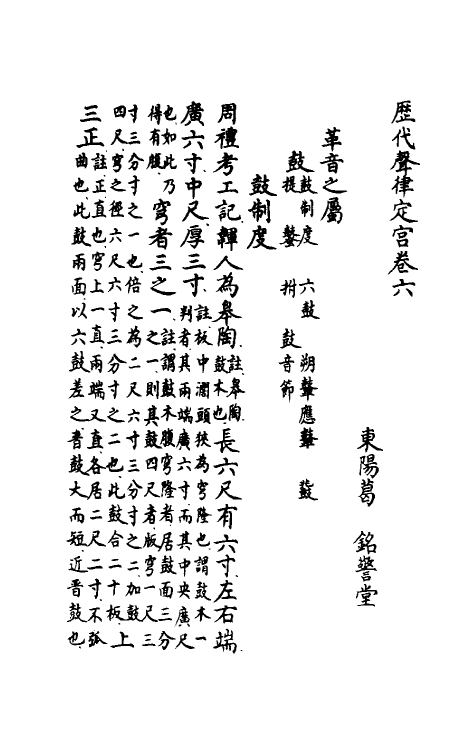 歴代聲律定宮卷六
東陽葛 銘警堂
革音之屬
鼓 鼓制度 六鼓 朔鼙應鼙 鼗
提 拊 鼓音節
鼓制度
周禮考工記韗人為皋陶 註皋陶
鼓木也 長六尺有六寸左右端
廣六寸中尺厚三寸 註板中濶頭狹為穹隆也謂鼓木一
判者其兩端廣六寸而其中央廣尺
也如此乃
得有腹 穹者三之一 註謂鼓木腹穹隆者居鼓面三分
之一則其鼓四尺者版穹一尺三
寸三分寸之一也倍之為二尺六寸三分寸之二加鼓
四尺穹之徑六尺六寸三分寸之二也此鼓合二十板 上
三正 註正直也穹上一直兩端又直各居二尺二寸不弧
曲也此鼓兩面以六鼓差之鼓大而短近晉鼓也